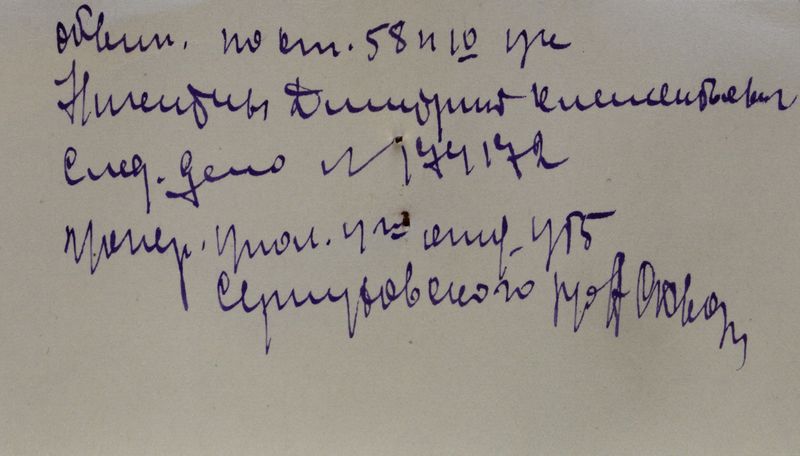 обвин. по ст. 58 п 10 ук
Никитин Дмитрий Климентьевич
След. дело № 174172
опер. упол. 4го отд. УГБ
Серпуховского